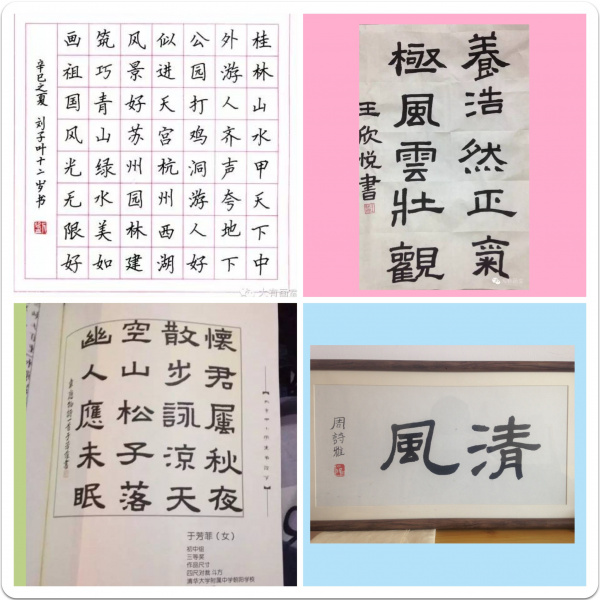 桂林山水甲天下中
外游人齐声夸地下
公园打鸡洞游人好
似进天宫杭州西湖
风景好苏州园林建
筑巧青山绿水美如
画祖国风光无限好
辛巳之夏 刘子叶十二岁书
養浩然正氣
極風雲壯觀
王欣悦書
懷君屬秋夜
散步詠涼天
空山松子落
幽人應未眠
于芳菲（女）
初中组
三等奖
作品尺寸
四尺对裁 斗方
清华大学附属中学朝阳学校
清風
周詩雅